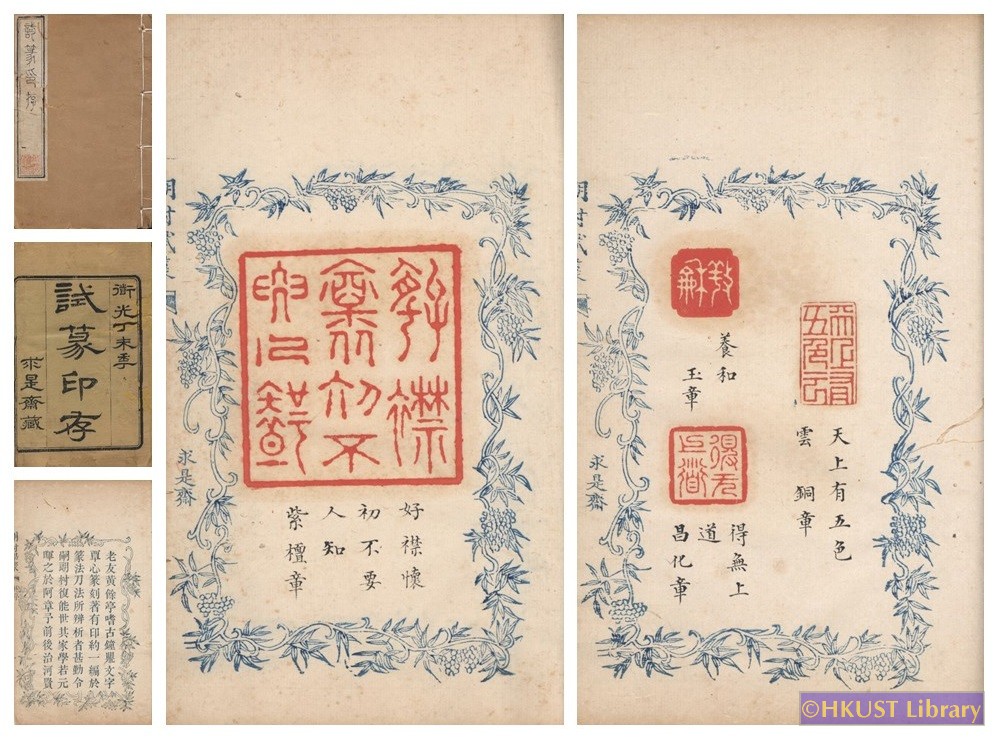 試篆印存
衜光丁未季
試篆印存
求是齋藏
老友黃餘亭嗜古鐘鼎文字
覃心篆刻著有印約一編於
篆法刀法所辨析者甚勤令
嗣朗村復能世其家學若元
暉之於阿章予前後治河賢
好襟懷
初不要
人知
紫檀章
求是齋
天上有五色
雲 銅章
養和
玉章
得無上
道
昌化章
求是齋
©HKUST Library